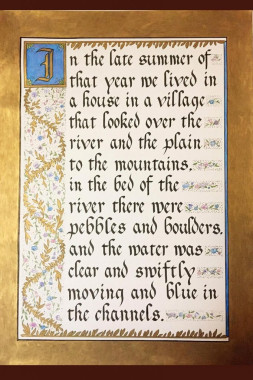 In the late summer of
that year we lived in
a house in a village
that looked over the
river and the plain
to the mountains.
in the bed of the
river there were
pebbles and boulders.
and the water was
clear and swiftly
moving and blue in
the channels.